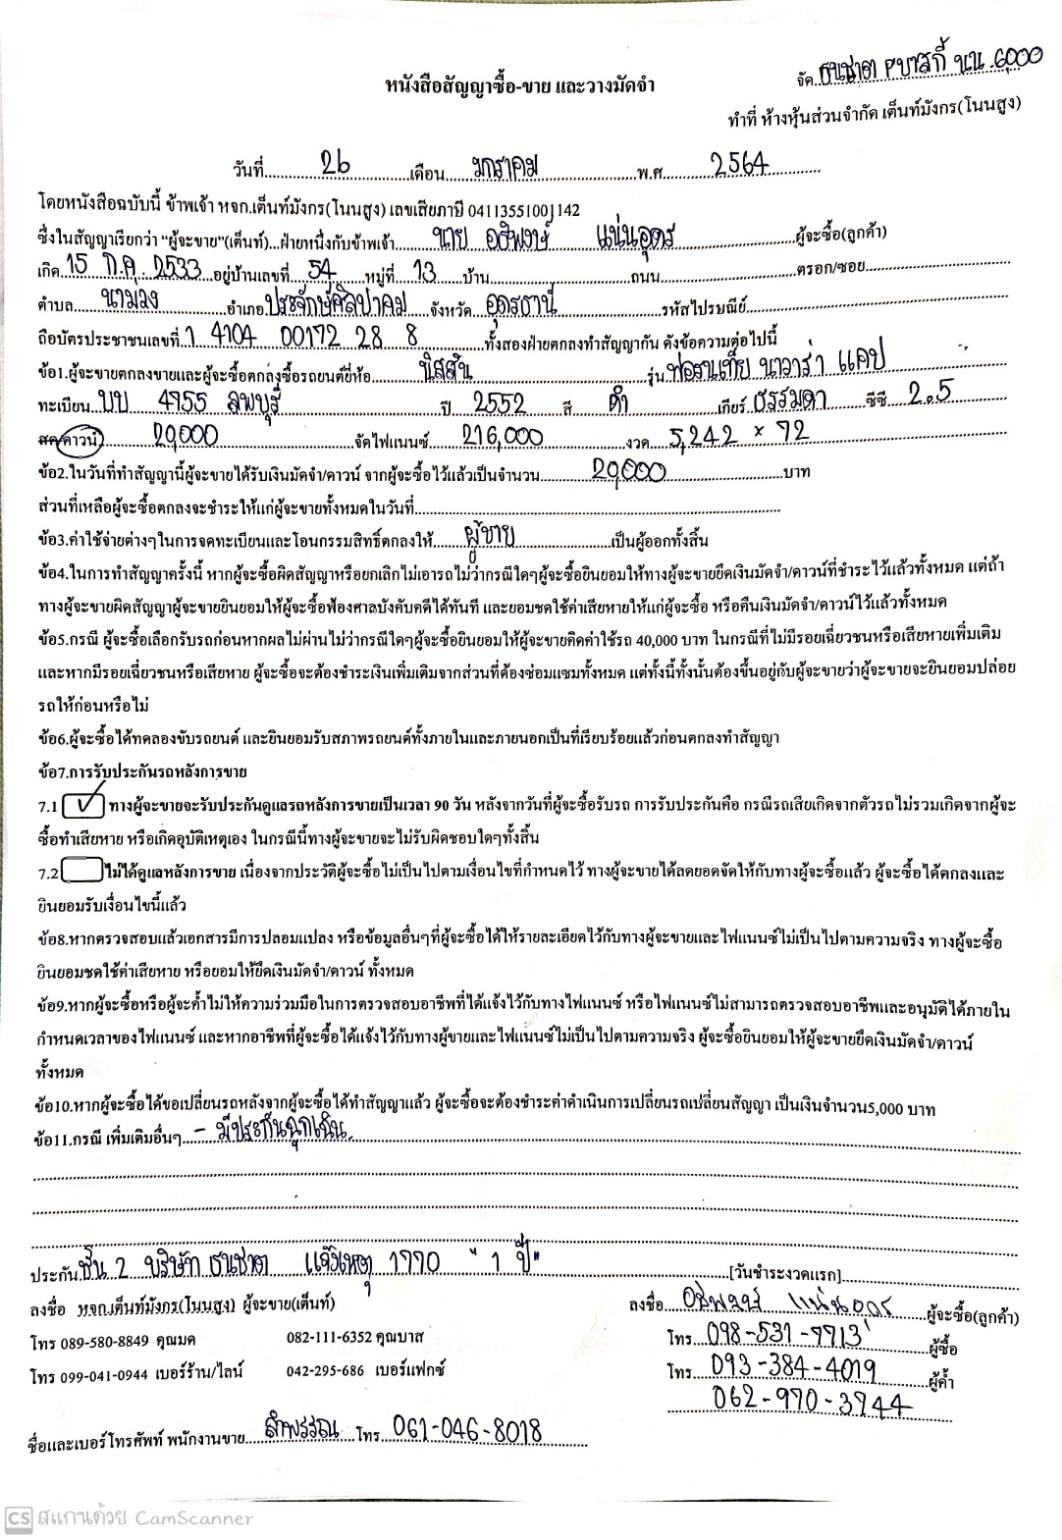 จัด ธนชาต คุบาสกี้ นน.6000
หนังสือสัญญาซื้อ-ขาย และวางมัดจำ
ทำที่ ห้างหุ้นส่วนจำกัด เต็นท์มังกร(โนนสูง)
วันที่ 26 เดือน มกราคม พ.ศ. 2564
โดยหนังสือฉบับนี้ ข้าพเจ้า หจก.เต็นท์มังกร(โนนสูง) เลขเสียภาษี 04113551001142
ซึ่งในสัญญาเรียกว่า "ผู้จะขาย"(เต็นท์)...ฝ่ายหนึ่งกับข้าพเจ้า นาย อธิพงษ์ แน่นอุดร ผู้จะซื้อ(ลูกค้า)
เกิด 15 ก.ค. 2533 อยู่บ้านเลขที่ 54 หมู่ที่ 13 บ้าน ถนน ตรอก/ซอย
ตำบล นาม่วง อำเภอ ประจักษ์ศิลปาคม จังหวัด อุดรธานี รหัสไปรษณีย์
ถือบัตรประชาชนเลขที่ 1 4104 00172 28 8 ทั้งสองฝ่ายตกลงทำสัญญากัน ดังข้อความต่อไปนี้
ข้อ1.ผู้จะขายตกลงขายและผู้จะซื้อตกลงซื้อรถยนต์ยี่ห้อ นิสสัน รุ่น ฟอรนเทีย นาวาร่า แคป
ทะเบียน บบ 4955 ลพบุรี ปี 2552 สี ดำ เกียร์ ธรรมดา ซีซี 2.5
สด/ดาวน์ 20,000 จัดไฟแนนซ์ 216,000 งวด 5,242 × 72
ข้อ2.ในวันที่ทำสัญญานี้ผู้จะขายได้รับเงินมัดจำ/ดาวน์ จากผู้จะซื้อไว้แล้วเป็นจำนวน 20,000 บาท
ส่วนที่เหลือผู้จะซื้อตกลงจะชำระให้แก่ผู้จะขายทั้งหมดในวันที่
ข้อ3.ค่าใช้จ่ายต่างๆในการจดทะเบียนและโอนกรรมสิทธิ์ตกลงให้ ผู้ขาย เป็นผู้ออกทั้งสิ้น
ข้อ4.ในการทำสัญญาครั้งนี้ หากผู้จะซื้อผิดสัญญาหรือยกเลิกไม่เอารถไม่ว่ากรณีใดๆผู้จะซื้อยินยอมให้ทางผู้จะขายยึดเงินมัดจำ/ดาวน์ที่ชำระไว้แล้วทั้งหมด แต่ถ้า
ทางผู้จะขายผิดสัญญาผู้จะขายยินยอมให้ผู้จะซื้อฟ้องศาลบังคับคดีได้ทันที และยอมชดใช้ค่าเสียหายให้แก่ผู้จะซื้อ หรือคืนเงินมัดจำ/ดาวน์ไว้แล้วทั้งหมด
ข้อ5.กรณี ผู้จะซื้อเลือกรับรถก่อนหากผลไม่ผ่านไม่ว่ากรณีใดๆผู้จะซื้อยินยอมให้ผู้จะขายคิดค่าใช้รถ 40,000 บาท ในกรณีที่ไม่มีรอยเฉี่ยวชนหรือเสียหายเพิ่มเติม
และหากมีรอยเฉี่ยวชนหรือเสียหาย ผู้จะซื้อจะต้องชำระเงินเพิ่มเติมจากส่วนที่ต้องซ่อมแซมทั้งหมด แต่ทั้งนี้ทั้งนั้นต้องขึ้นอยู่กับผู้จะขายว่าผู้จะขายจะยินยอมปล่อย
รถให้ก่อนหรือไม่
ข้อ6.ผู้จะซื้อได้ทดลองขับรถยนต์ และยินยอมรับสภาพรถยนต์ทั้งภายในและภายนอกเป็นที่เรียบร้อยแล้วก่อนตกลงทำสัญญา
ข้อ7.การรับประกันรถหลังการขาย
7.1 ✓ ทางผู้จะขายจะรับประกันดูแลรถหลังการขายเป็นเวลา 90 วัน หลังจากวันที่ผู้จะซื้อรับรถ การรับประกันคือ กรณีรถเสียเกิดจากตัวรถ ไม่รวมเกิดจากผู้จะ
ซื้อทำเสียหาย หรือเกิดอุบัติเหตุเอง ในกรณีนี้ทางผู้จะขายจะไม่รับผิดชอบใดๆทั้งสิ้น
7.2 ไม่ได้ดูแลหลังการขาย เนื่องจากประวัติผู้จะซื้อไม่เป็นไปตามเงื่อนไขที่กำหนดไว้ ทางผู้จะขายได้ลดยอดจัดให้กับทางผู้จะซื้อแล้ว ผู้จะซื้อได้ตกลงและ
ยินยอมรับเงื่อนไขนี้แล้ว
ข้อ8.หากตรวจสอบแล้วเอกสารมีการปลอมแปลง หรือข้อมูลอื่นๆที่ผู้จะซื้อได้ให้รายละเอียดไว้กับทางผู้จะขายและไฟแนนซ์ไม่เป็นไปตามความจริง ทางผู้จะซื้อ
ยินยอมชดใช้ค่าเสียหาย หรือยอมให้ยึดเงินมัดจำ/ดาวน์ ทั้งหมด
ข้อ9.หากผู้จะซื้อหรือผู้จะค้ำไม่ให้ความร่วมมือในการตรวจสอบอาชีพที่ได้แจ้งไว้กับทางไฟแนนซ์ หรือไฟแนนซ์ไม่สามารถตรวจสอบอาชีพและอนุมัติได้ภายใน
กำหนดเวลาของไฟแนนซ์ และหากอาชีพที่ผู้จะซื้อได้แจ้งไว้กับทางผู้ขายและไฟแนนซ์ไม่เป็นไปตามความจริง ผู้จะซื้อยินยอมให้ผู้จะขายยึดเงินมัดจำ/ดาวน์
ทั้งหมด
ข้อ10.หากผู้จะซื้อได้ขอเปลี่ยนรถหลังจากผู้จะซื้อได้ทำสัญญาแล้ว ผู้จะซื้อจะต้องชำระค่าดำเนินการเปลี่ยนรถเปลี่ยนสัญญา เป็นเงินจำนวน5,000 บาท
ข้อ11.กรณี เพิ่มเติมอื่นๆ - มีประกันฉุกเฉิน
ประกัน ชั้น 2 บริษัท ธนชาต แจ้งเหตุ 1770 "1 ปี" [วันชำระงวดแรก]
ลงชื่อ หจก.เต็นท์มังกร(โนนสูง) ผู้จะขาย(เต็นท์) ลงชื่อ อธิพงษ์ แน่นอุดร ผู้จะซื้อ(ลูกค้า)
โทร 089-580-8849 คุณมด 082-111-6352 คุณบาส โทร 098-531-9913 ผู้ซื้อ
โทร 099-041-0944 เบอร์ร้าน/ไลน์ 042-295-686 เบอร์แฟกซ์ โทร 093-384-4019 ผู้ค้ำ
062-970-3944
ชื่อและเบอร์โทรศัพท์ พนักงานขาย ลำพรรณ โทร 061-046-8018
CS สแกนด้วย CamScanner